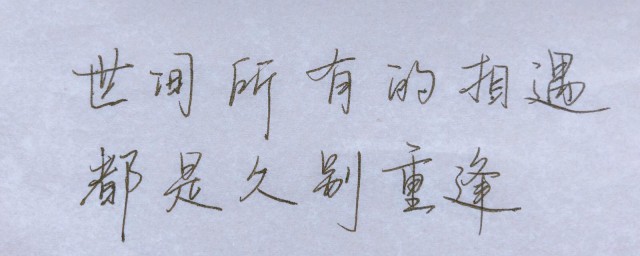 世间所有的相遇
都是久别重逢